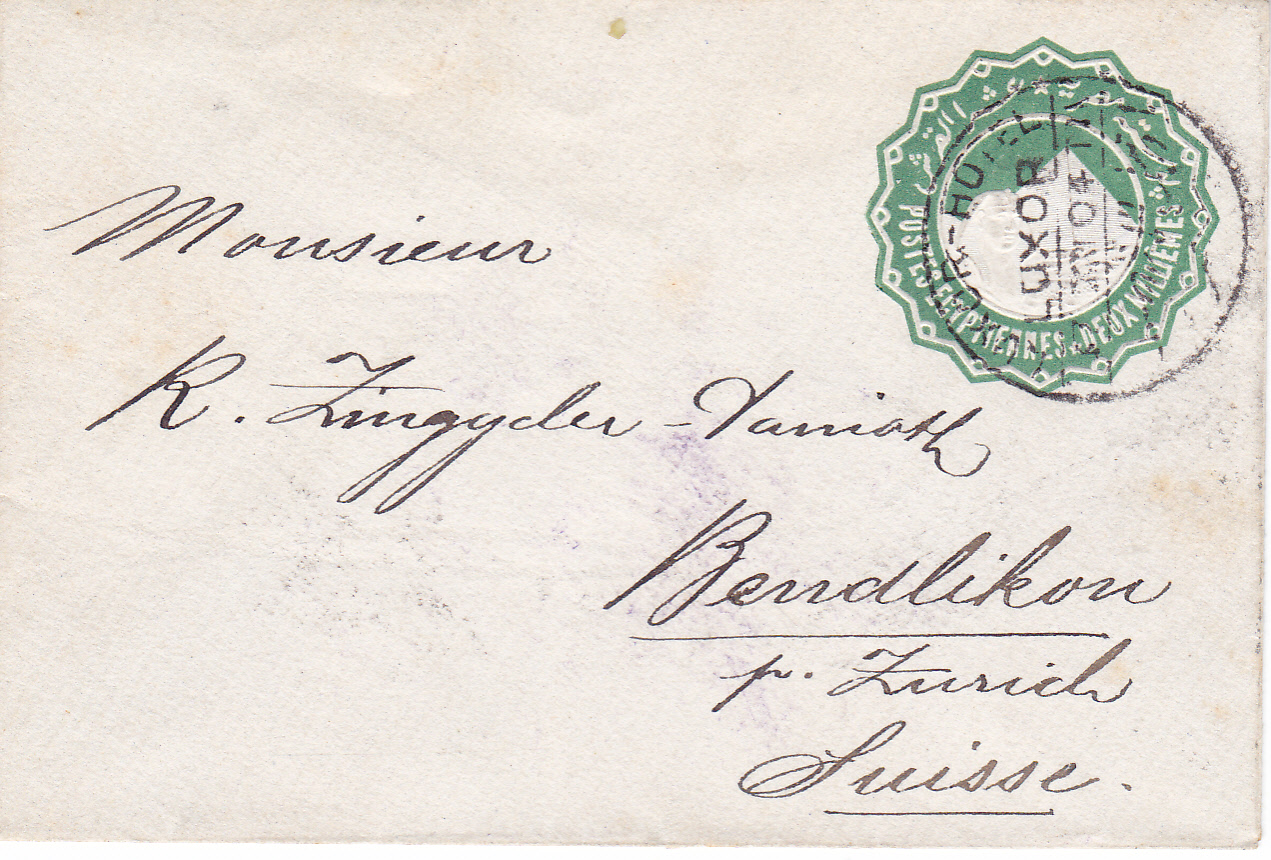 Monsieur
K. Zinggeler-Danioth
Bendlikon
p. Zurich
Suisse.
POSTES EGYPTIENNES
DEUX MILLIEMES
LUXOR-HOTEL
LUXOR